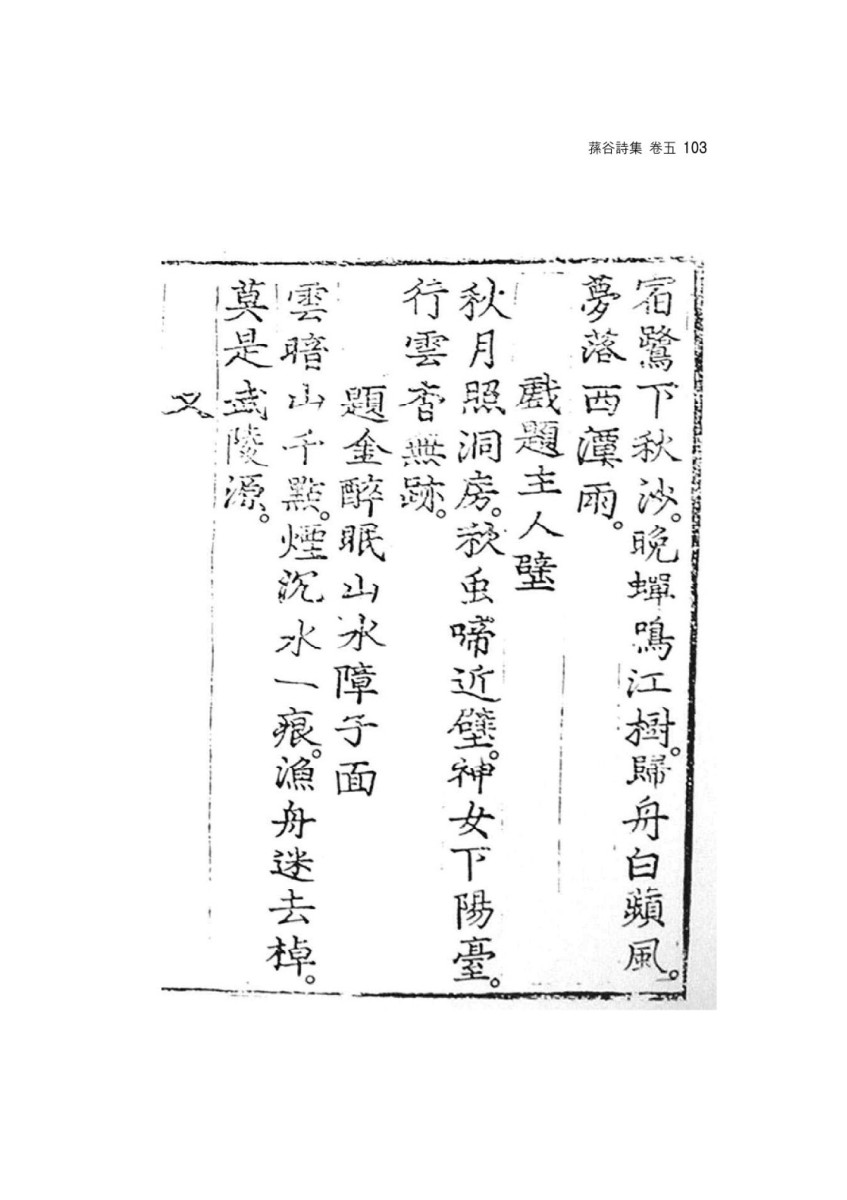 蓀谷詩集 卷五 103
宿鷺下秋沙。晩蟬鳴江樹。歸舟白蘋風。
夢落西潭雨。
戲題主人壁
秋月照洞房。秋虫啼近壁。神女下陽臺。
行雲杳無跡。
題金醉眠山水障子面
雲暗山千點。煙沉水一痕。漁舟迷去棹。
莫是武陵源。
又